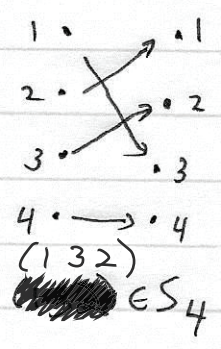 1 1
2 2
3 3
4 4
(1 3 2)
∈ S4